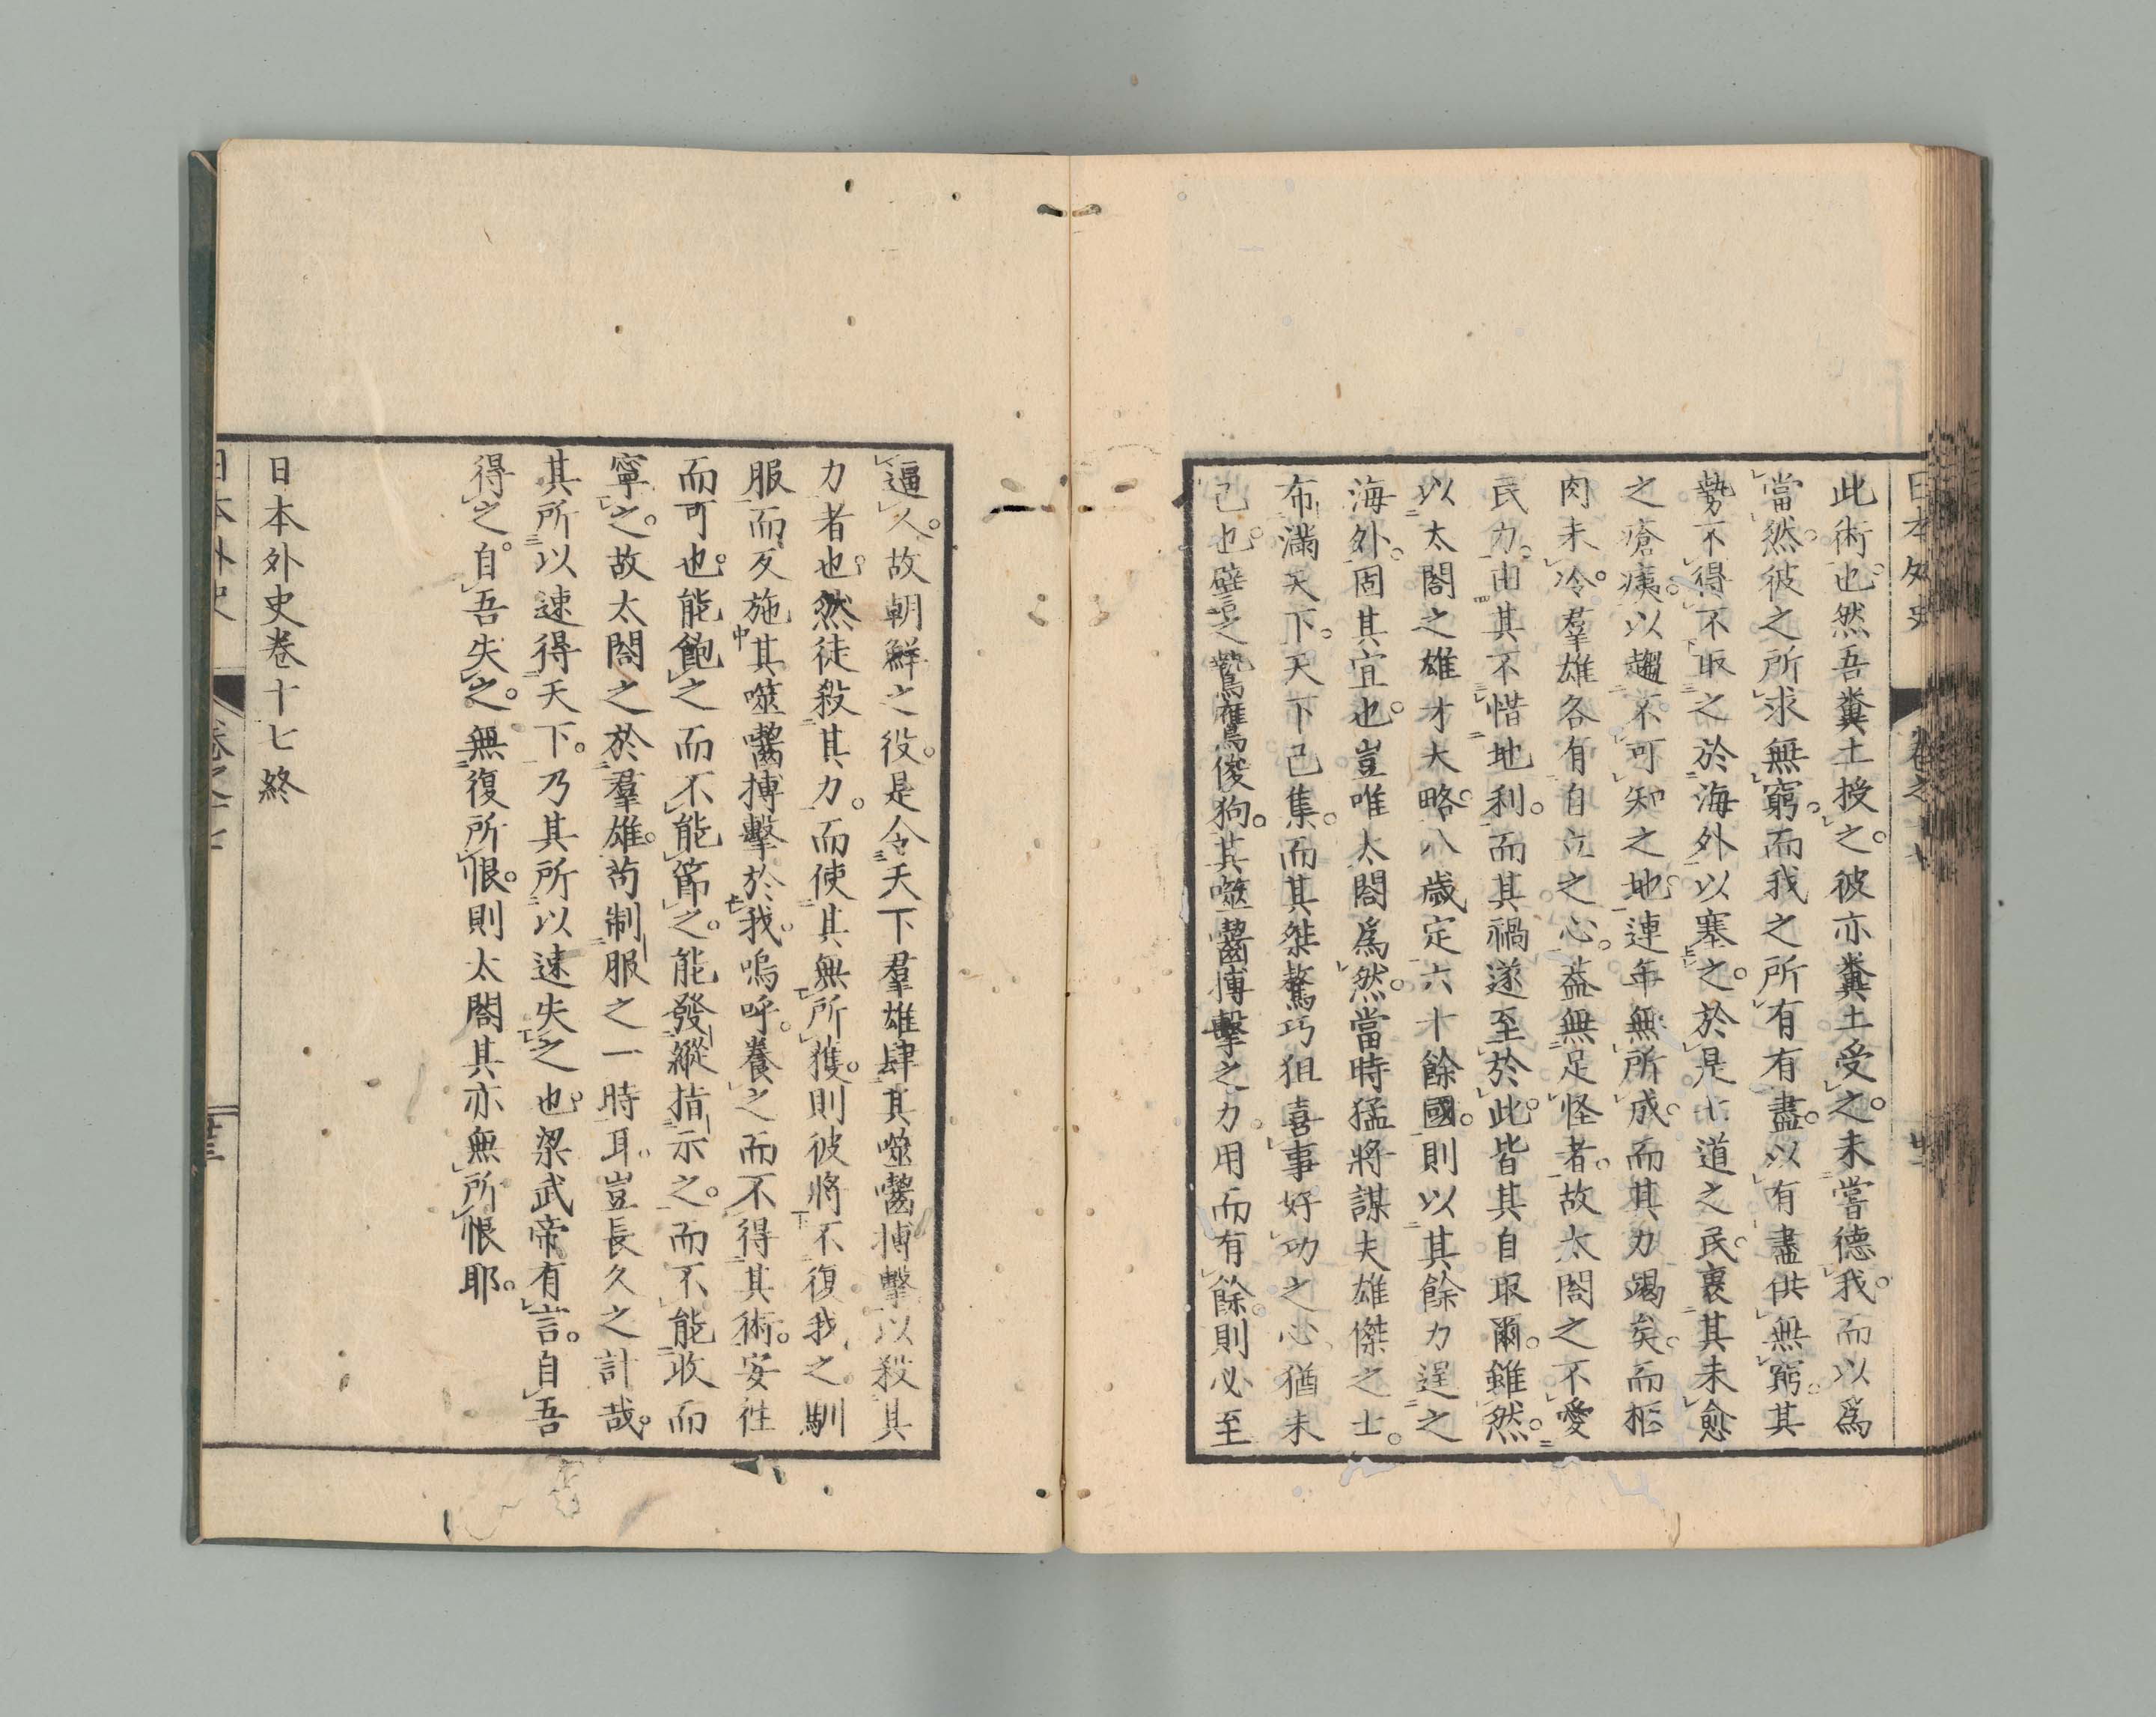 日本外史 卷之十七
此術也。然吾糞土授之。彼亦糞土受之。未嘗德我。而以爲
當然。彼之所求無窮。而我之所有有盡。以有盡供無窮。其
勢不得不取之於海外以塞之。於是七道之民。裹其未愈
之瘡痍。以趨不可知之地。連年無所成。而其力竭矣。而柩
肉未冷。羣雄各有自立之心。蓋無足怪者。故太閤之不愛
民力。由其不惜地利。而其禍遂至於此。皆其自取爾。雖然。
以太閤之雄才大略。八歲定六十餘國。則以其餘力逞之
海外。固其宜也。豈唯太閤爲然。當時猛將謀夫雄傑之士。
布滿天下。天下已集。而其桀驁巧狙喜事好功之心。猶未
已也。譬之鷙鷹俊狗。其噬齧搏擊之力。用而有餘。則必至
逼人。故朝鮮之役。是令天下羣雄肆其噬齧搏擊以殺其
力者也。然徒殺其力。而使其無所獲。則彼將不復我之馴
服。而反施其噬齧搏擊於我。嗚呼。養之而不得其術。安往
而可也。能飽之而不能節之。能發縱指示之。而不能收而
寧之。故太閤之於羣雄。苟制服之一時耳。豈長久之計哉。
其所以速得天下。乃其所以速失之也。梁武帝有言。自吾
得之。自吾失之。無復所恨。則太閤其亦無所恨耶。
日本外史卷十七終
日本外史 卷之十七